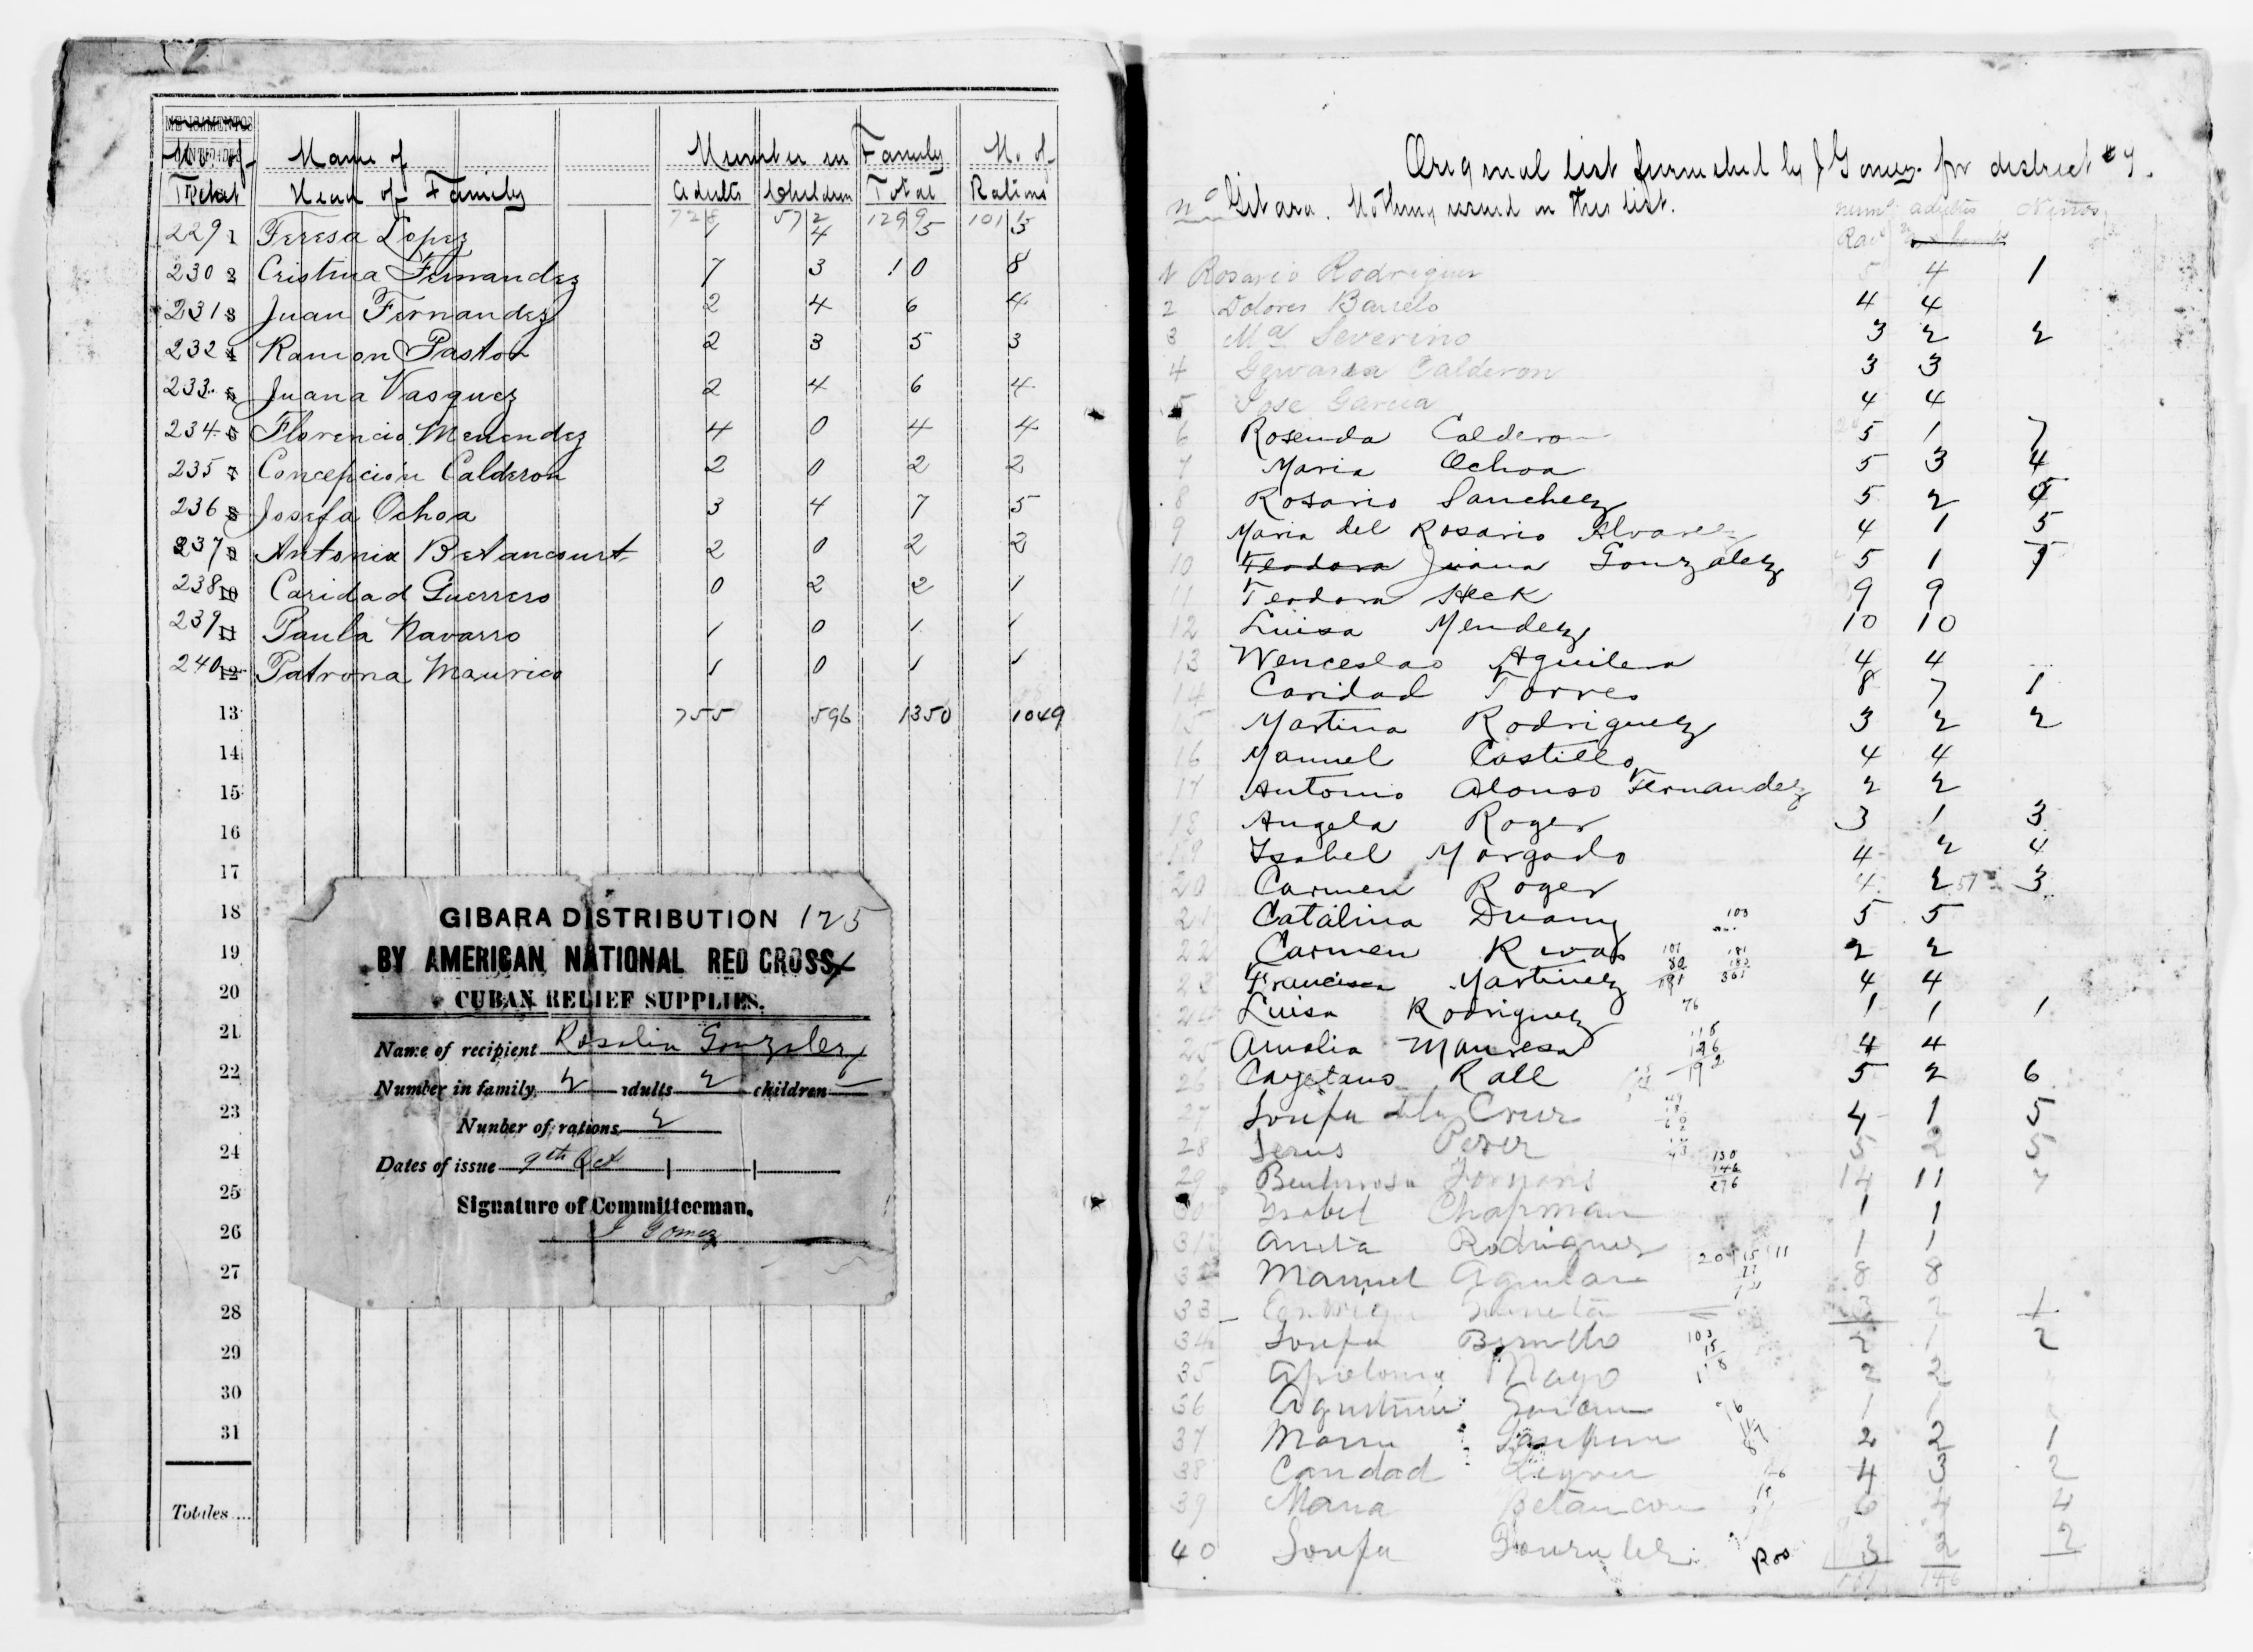 No. of Name of Number in Family No. of
Ticket Head of Family Adults Children Total Rations
728 572 1299 1016
229 1 Teresa Lopez 1 4 5 3
230 2 Cristina Fernandez 7 3 10 8
231 3 Juan Fernandez 2 4 6 4
232 4 Ramon Pastor 2 3 5 3
233 5 Juana Vasquez 2 4 6 4
234 6 Florencio Menendez 4 0 4 4
235 7 Concepción Calderon 2 0 2 2
236 8 Josefa Ochoa 3 4 7 5
237 9 Antonia Betancourt 2 0 2 2
238 10 Caridad Guerrero 0 2 2 1
239 11 Paula Navarro 1 0 1 1
240 12 Patrona Maurico 1 0 1 1
13 755 596 1350 1049
14
15
16
17
18
19
20
21
22
23
24
25
26
27
28
29
30
31
Totales ....
GIBARA DISTRIBUTION 125
BY AMERICAN NATIONAL RED CROSS,
CUBAN RELIEF SUPPLIES.
Name of recipient Rosalia Gonzalez
Number in family 2 adults 2 children —
Number of rations 2
Dates of issue 9th Oct
Signature of Committeeman.
J Gomez
Original list furnished by J Gomez for district #7.
No Gibara. Nothing issued on this list.
numo adultos Niños
Raco
1 Rosario Rodriguez 5 4 1
2 Dolores Barcelo 4 4
3 Ma Severino 3 2 2
4 Gervasia Calderon 3 3
5 Jose Garcia 4 4
6 Rosenda Calderon 5 1 7
7 Maria Ochoa 5 3 4
8 Rosario Sanchez 5 2 5
9 Maria del Rosario Alvarez 4 1 5
10 Teodora Juana Gonzalez 5 1 7
11 Teodora Heck 9 9
12 Luisa Mendez 10 10
13 Wenceslao Aguilera 4 4
14 Caridad Torres 8 7 1
15 Martina Rodriguez 3 2 2
16 Manuel Castillo 4 4
17 Antonio Alonso Fernandez 2 2
18 Angela Roger 3 1 3
19 Isabel Morgado 4 2 4
20 Carmen Roger 4 2 3
21 Catalina Duany 5 5
22 Carmen Rivas 2 2
23 Francisca Martinez 4 4
24 Luisa Rodriguez 1 1 1
25 Amalia Manresa 4 4
26 Cayetano Rall 5 2 6
27 Josefa de la Cruz 4 1 5
28 Jesus Perez 5 2 5
29 14 11 7
30 Isabel Chapman 1 1
31 Aneta Rodriguez 1 1
32 Manuel Aguilar 8 8
33 3 2 1
34 Josefa 2 1 2
35 Mayo 2 2
36 1 1
37 Maria 2 2 1
38 Caridad Leyva 4 3 2
39 Maria Betancou 6 4 4
40 Josefa Gonzalez 3 2 2
146